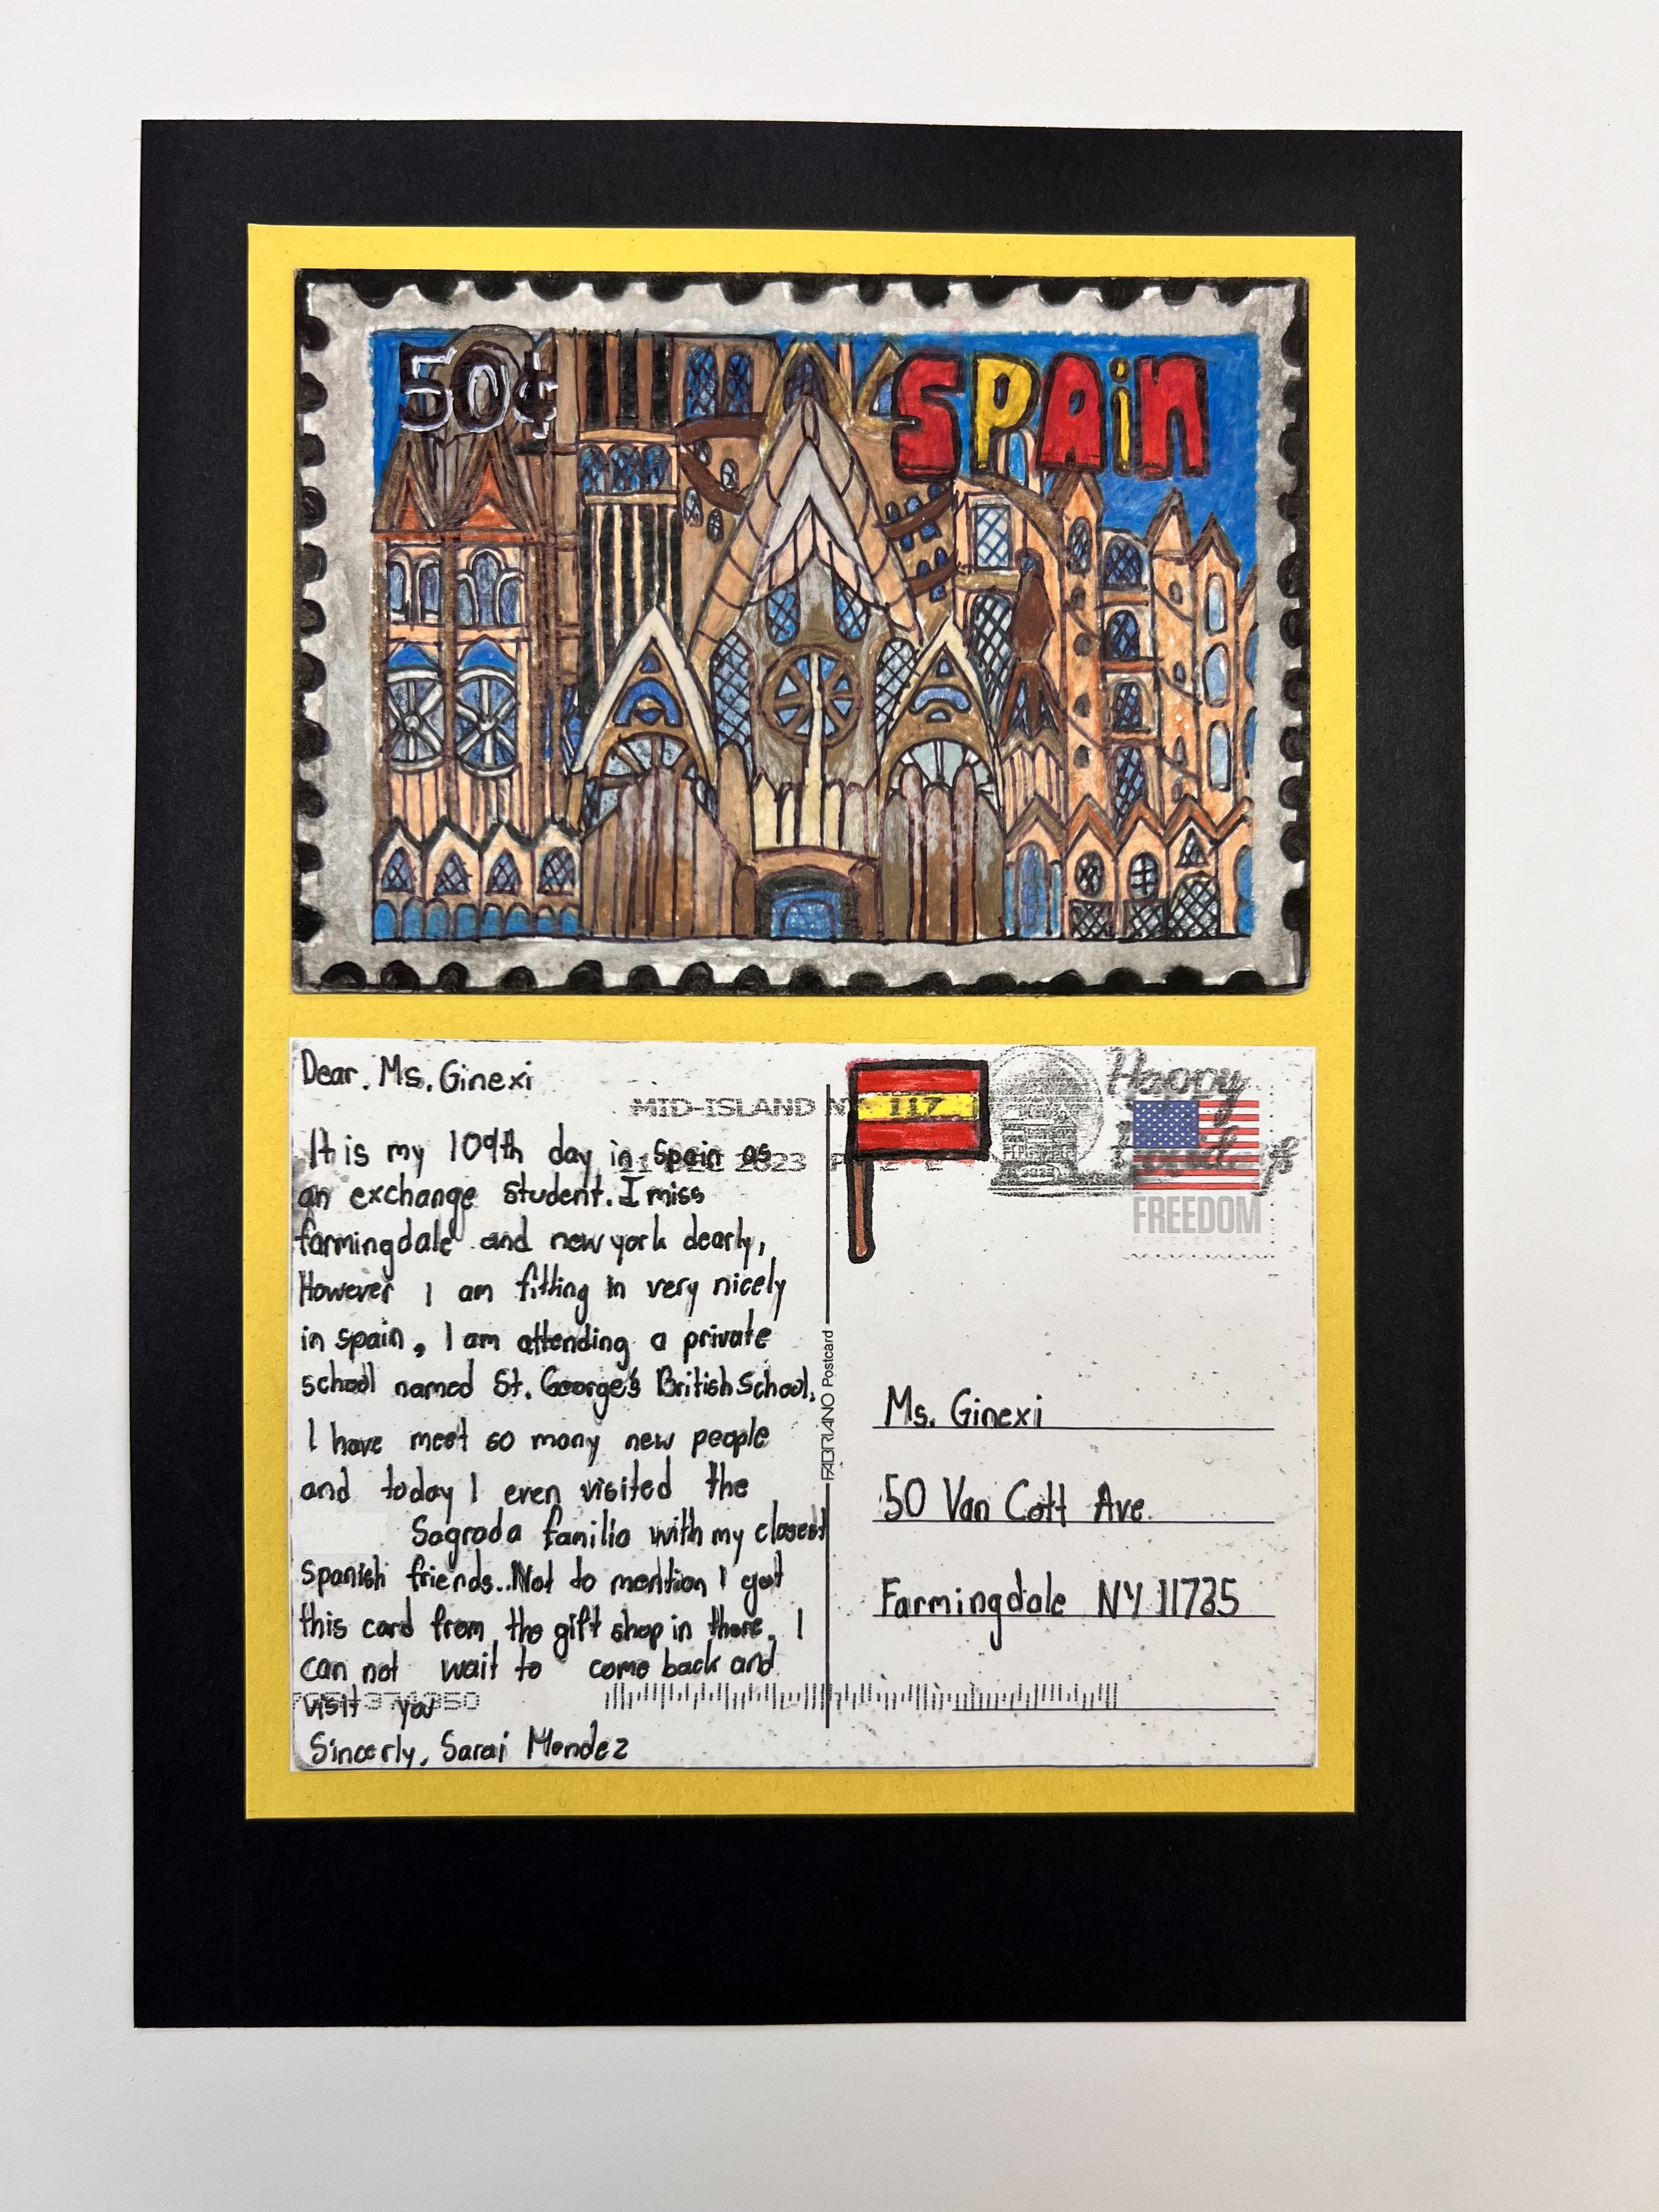 50¢
SPAiN
Dear. Ms. Ginexi
It is my 109th day in spain as
an exchange student. I miss
farmingdale and new york dearly,
However I am fitting in very nicely
in spain, I am attending a private
school named St. George's British School.
I have meet so many new people
and today I even visited the
Sagrada familia with my closest
spanish friends..Not to mention I got
this card from the gift shop in there. I
can not wait to come back and
visit you
Sincerly, Sarai Mendez
MID-ISLAND NY 117
2023
FABRIANO Postcard
Happy
FREEDOM
Ms. Ginexi
50 Van Cott Ave.
Farmingdale NY 11735